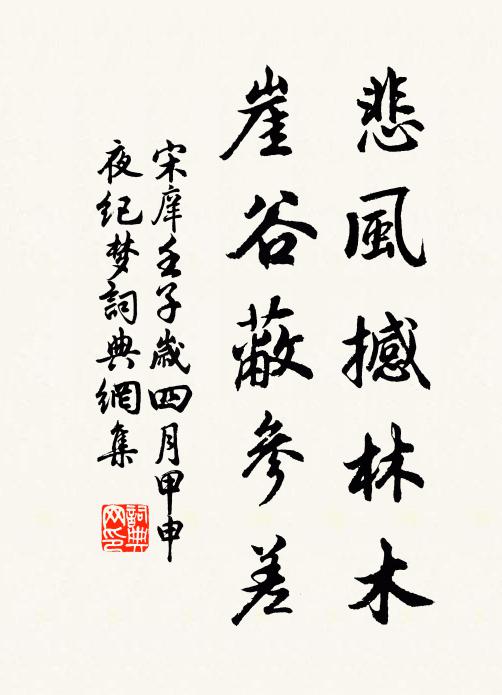 悲風撼林木
崖谷蔽參差
宋庠壬子歲四月甲申
夜紀梦詞典網集
詞典
网印